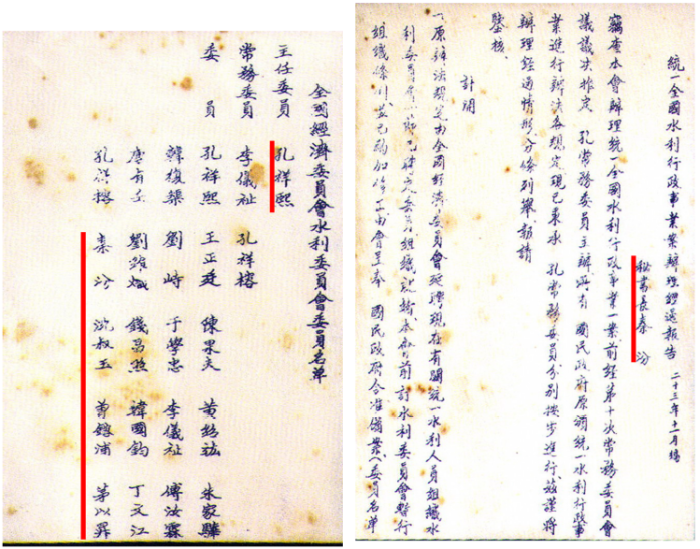 統一全國水利行政事業辦理經過報告 二十三年十一月編
秘書長秦 汾
竊查本會辦理統一全國水利行政事業一案前經第十次常務委員會
議議決推定 孔常務委員主辦並有 國民政府原頒統一水利行政事
業進行辦法各規定現已秉承 孔常務委員分別按步進行茲謹將
辦理經過情形分條列舉報請
鑒核、
計開
一、原辦法規定由全國經濟委員會延聘現在有關統一水利人員組織水
利委員會一節已 委員組織 水利委員會暫行
組織條例並已 由會呈奉 國民政府令准備案委員名單
全國經濟委員會水利委員會委員名單
主任委員 孔祥熙
常務委員 李儀祉 孔祥榕
委 員 孔祥熙 王正廷 陳果夫 黃紹竑 朱家驊
韓復榘 劉 峙 于學忠 李儀祉 傅汝霖
唐有壬 劉 錢昌照 韓國鈞 丁文江
孔祥榕 秦 汾 沈叔玉 曾鎔浦 茅以昇